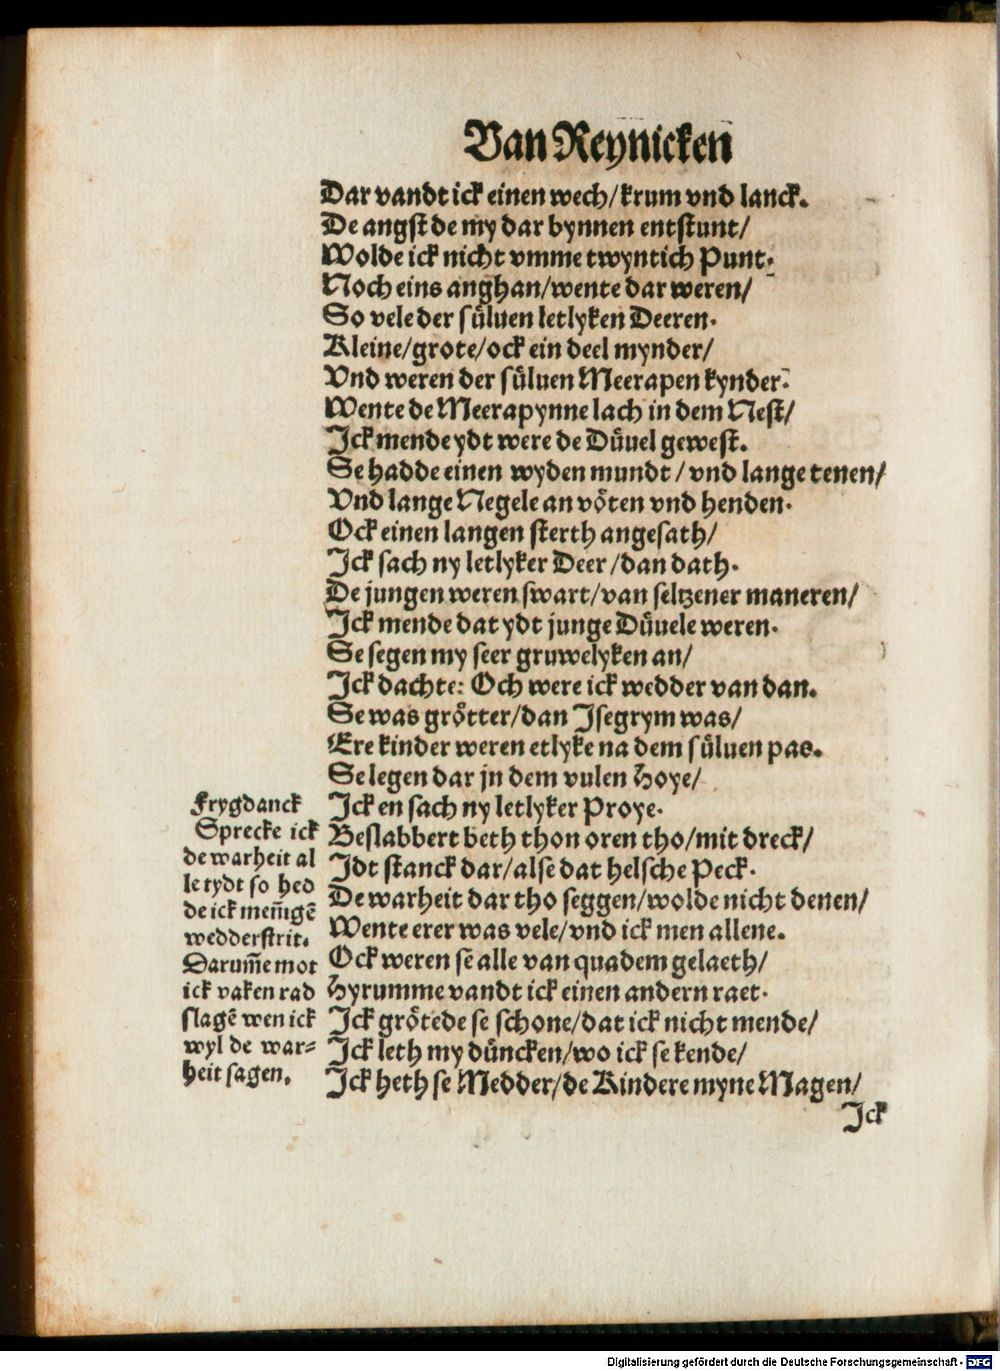 Van Reynicken
Dar vandt ick einen wech/krum vnd lanck.
De angst de my dar bynnen entstunt/
Wolde ick nicht vmme twyntich Punt.
Noch eins anghan/wente dar weren/
So vele der süluen letlyken Deeren.
Kleine/grote/ock ein deel mynder/
Vnd weren der süluen Meerapen kynder.
Wente de Meerapynne lach in dem Nest/
Ick mende ydt were de Düuel gewest.
Se hadde einen wyden mundt/vnd lange tenen/
Vnd lange Negele an vöten vnd henden.
Ock einen langen sterth angesath/
Ick sach ny letlyker Deer/dan dath.
De jungen weren swart/van seltzener maneren/
Ick mende dat ydt junge Düuele weren.
Se segen my seer gruwelyken an/
Ick dachte: Och were ick wedder van dan.
Se was grötter/dan Isegrym was/
Ere kinder weren etlyke na dem süluen pas.
Se legen dar jn dem vulen Hoye/
Ick en sach ny letlyker Proye.
Beslabbert beth thon oren tho/mit dreck/
Idt stanck dar/alse dat helsche Peck.
De warheit dar tho seggen/wolde nicht denen/
Wente erer was vele/vnd ick men allene.
Ock weren se alle van quadem gelaeth/
Hyrumme vandt ick einen andern raet.
Ick grötede se schone/dat ick nicht mende/
Ick leth my düncken/wo ick se kende/
Ick heth se Medder/de Kindere myne Magen/
Ick
Frygdanck
Sprecke ick
de warheit al
le tydt so hed
de ick mem̄igē
wedderstrit.
Darum̄e mot
ick vaken rad
slagē wen ick
wyl de war⸗
heit sagen.
Digitalisierung gefördert durch die Deutsche Forschungsgemeinschaft - DFG